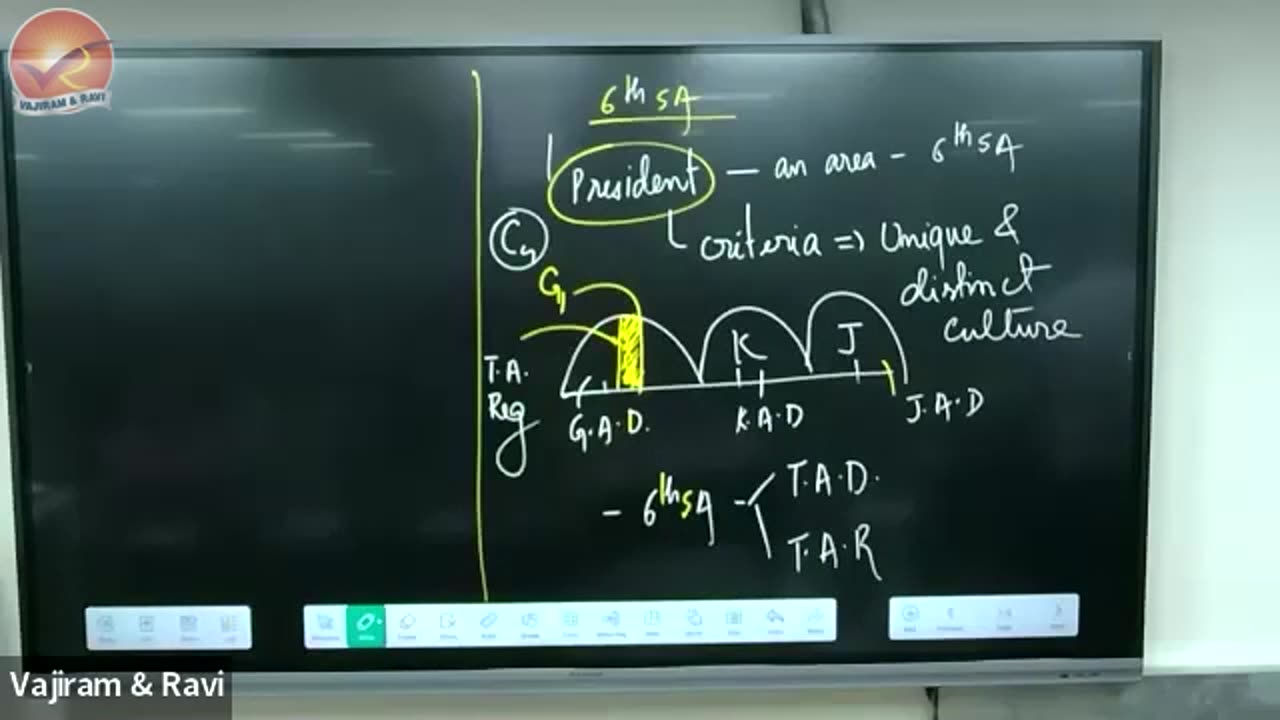 VAJIRAM & RAVI
6th SA
President — an area - 6th SA
criteria => Unique &
distinct
culture
G1
K
J
T.A.
Reg
G.A.D.
K.A.D
J.A.D
- 6th SA - T.A.D.
T.A.R
Vajiram & Ravi